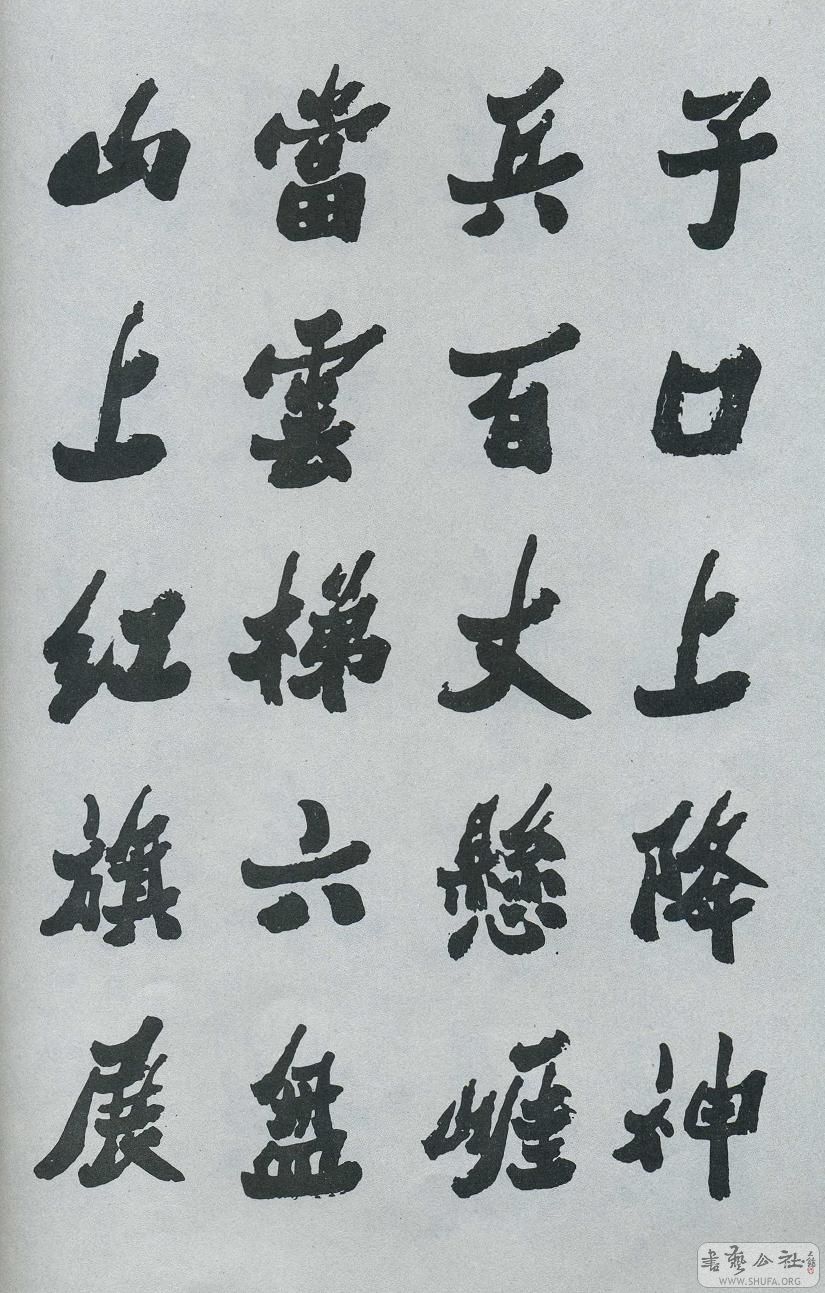 子口上降神
兵百丈懸崕
當雲梯六盤
山上红旗展
書藝公社
WWW.SHUFA.ORG